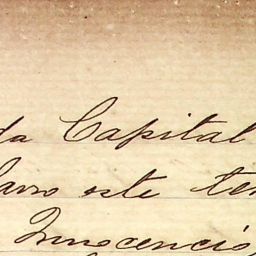 da Capital
lavro este ter
Innocencio